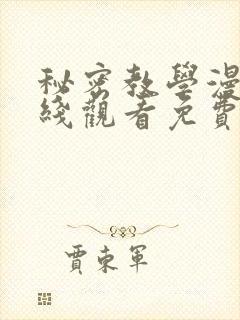 秘密教學漫
綫觀看免費
賈東軍